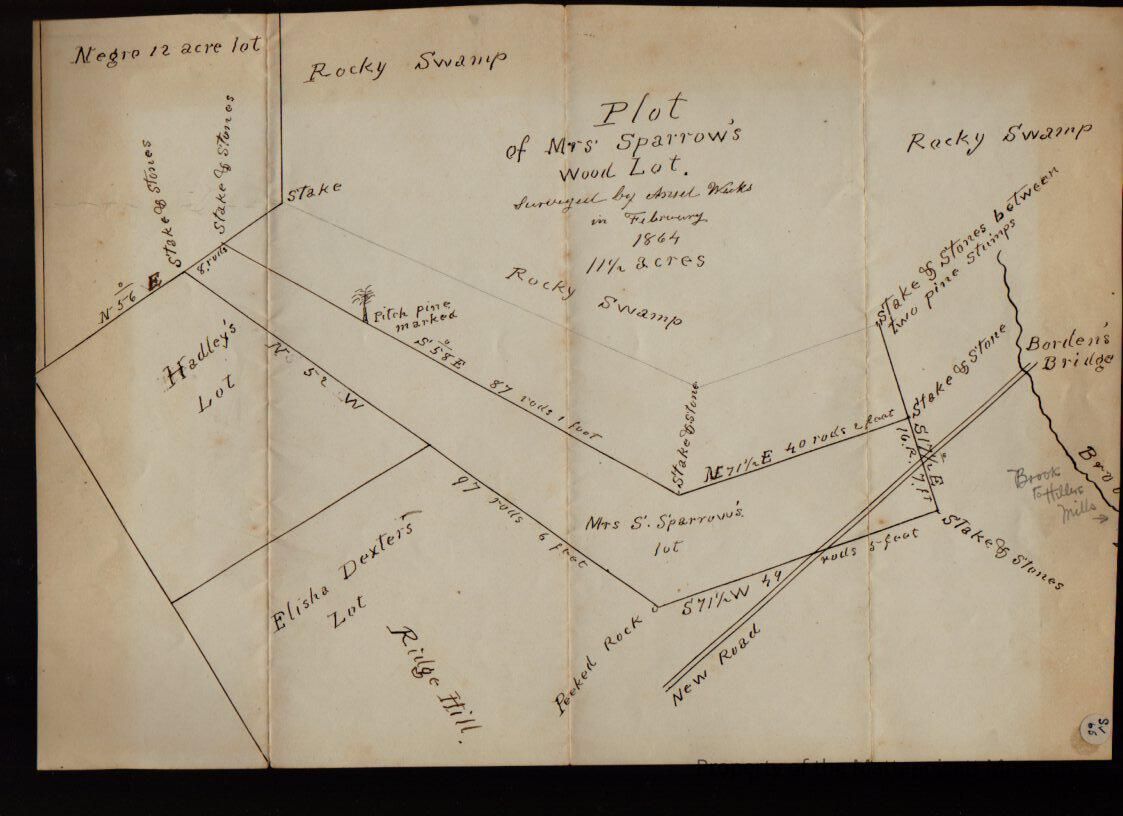 Negro 12 acre lot
Rocky Swamp
Plot
of Mrs Sparrow's
Wood Lot.
Surveyed by Ansel Weeks
in February
1864
11½ acres
Rocky Swamp
Stake & Stones
Stake & Stones
Stake
N 56° E
8 rods
Hadley's
Lot
Pitch pine
marked
S 58° E 87 rods 1 foot
N 52 W 97 rods 6 feet
Rocky Swamp
Stake & Stone
N 71½ E 40 rods 2 feet
Stake & Stones between
two pine Stumps
Stake & Stone
Borden's
Bridge
S 17½° E
16. R. 7. ft
Brook
Brook
to Hillers
Mills
Stake & Stones
Mrs S. Sparrow's
lot
S 71½ W 49 rods 5 feet
Peeked Rock
New Road
Elisha Dexter's
Lot
Ridge Hill.
Property of the